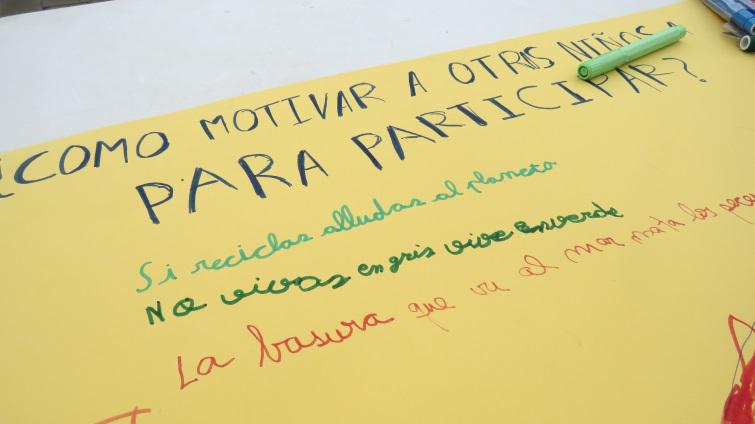 ¿COMO MOTIVAR A OTROS NIÑOS A
PARA PARTICIPAR?
Si reciclas alludas al planeta
No vivas en gris vive en verde
La basura que va al mar mata los